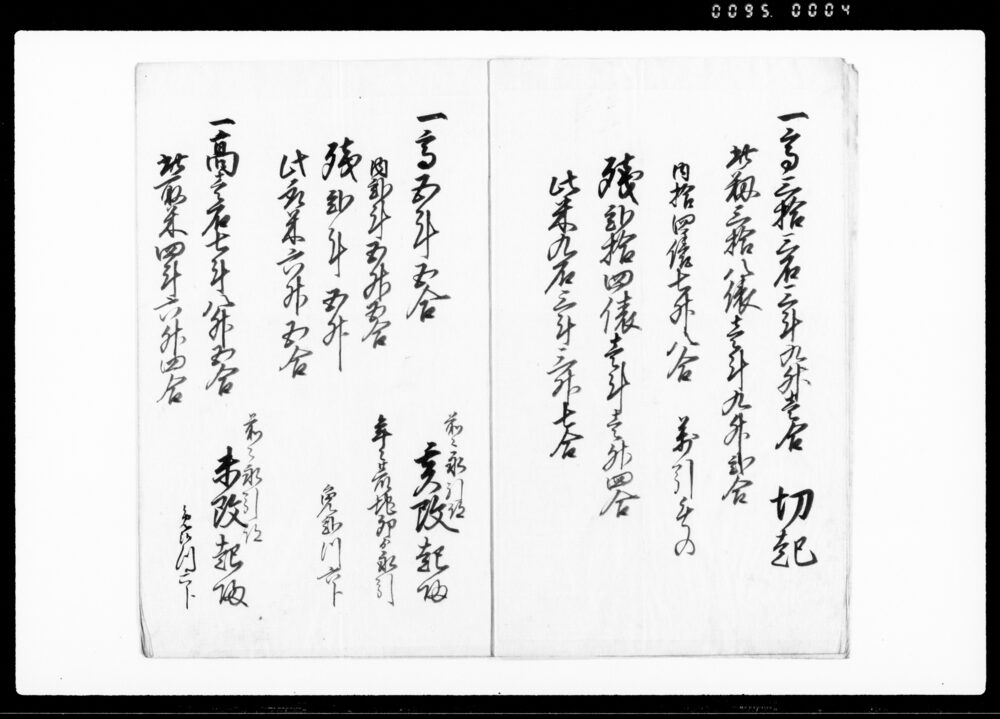 0095. 0004
一高三拾三石三斗九升壱合 切起
此籾三拾八俵壱斗九升弐合
内拾四俵七升八合
残弐拾四俵壱斗壱升四合
此米九石三斗三升七合
一高五斗五合
前々永引
改起返
内弐斗五升五合
年々荒地卯永引
残弐斗五升
此取米六升五合
免弐ツ六ト
一高壱石七斗八升五合
前々永引
未改起返
此取米四斗六升四合
免弐ツ六ト